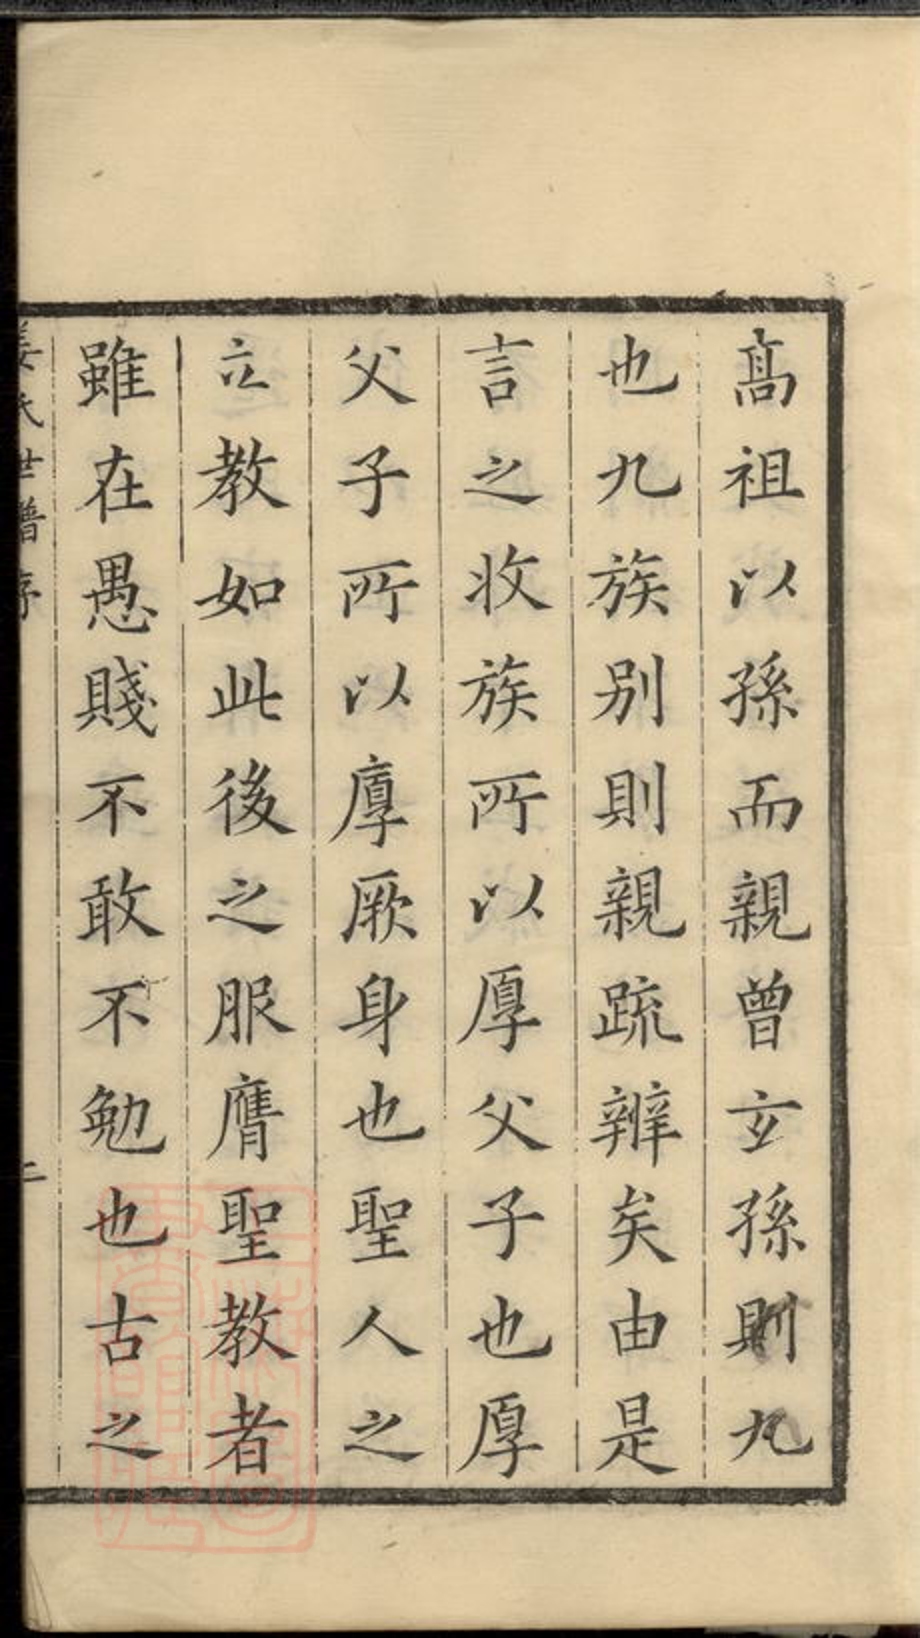 髙祖以孫而親曾玄孫則九
也九族别則親疏辨矣由是
言之收族所以厚父子也厚
父子所以厚厥身也聖人之
立教如此後之服膺聖教者
雖在愚賤不敢不勉也古之
姜氏世譜序
二